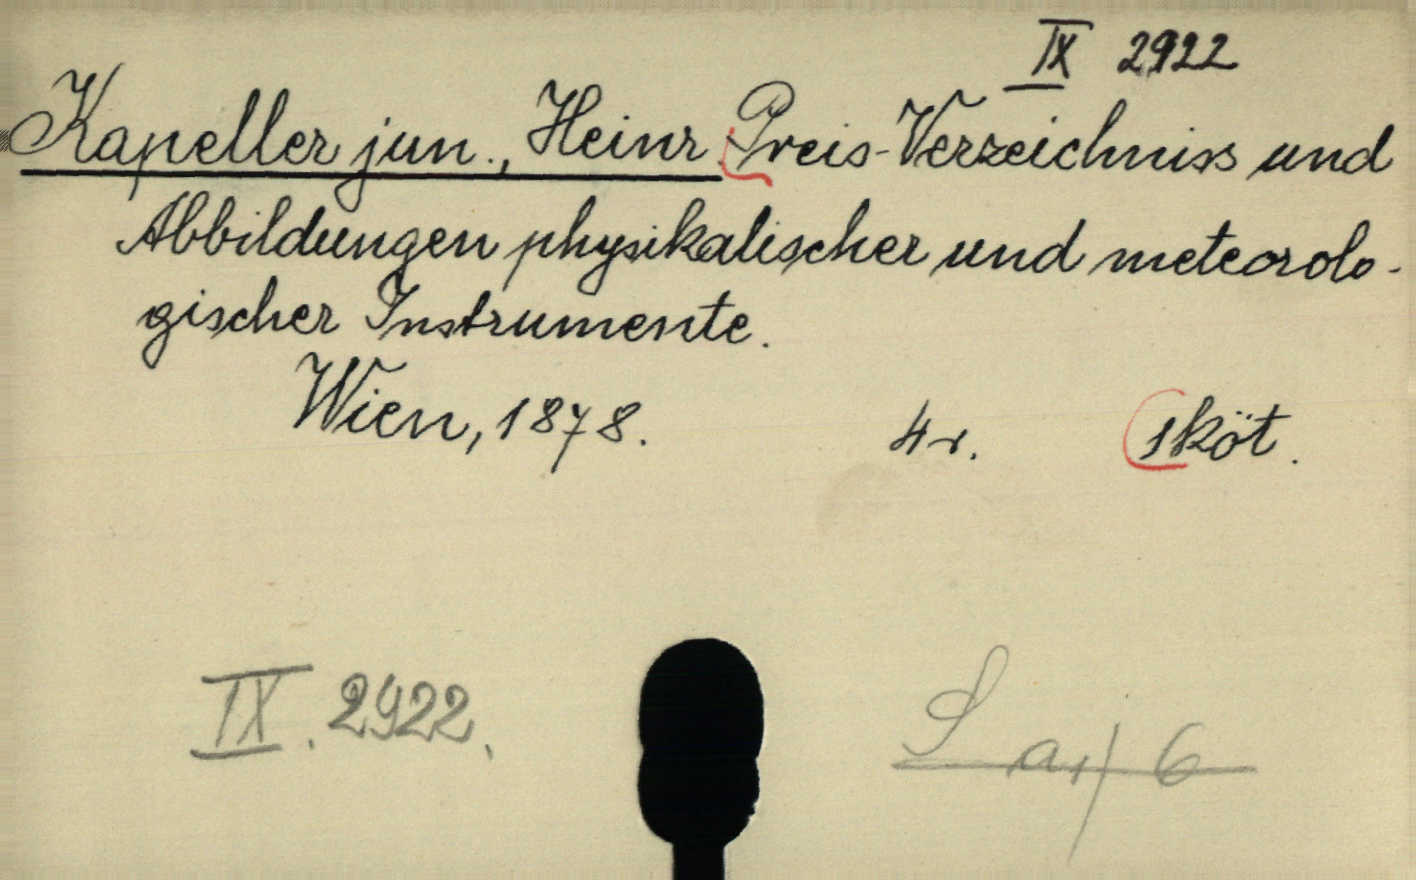 IX 2922
Kapeller jun., Heinr Preis-Verzeichniss und
Abbildungen physikalischer und meteorolo-
gischer Instrumente.
Wien, 1878. 4r. 1 köt.
IX. 2922.
L a,/ 6